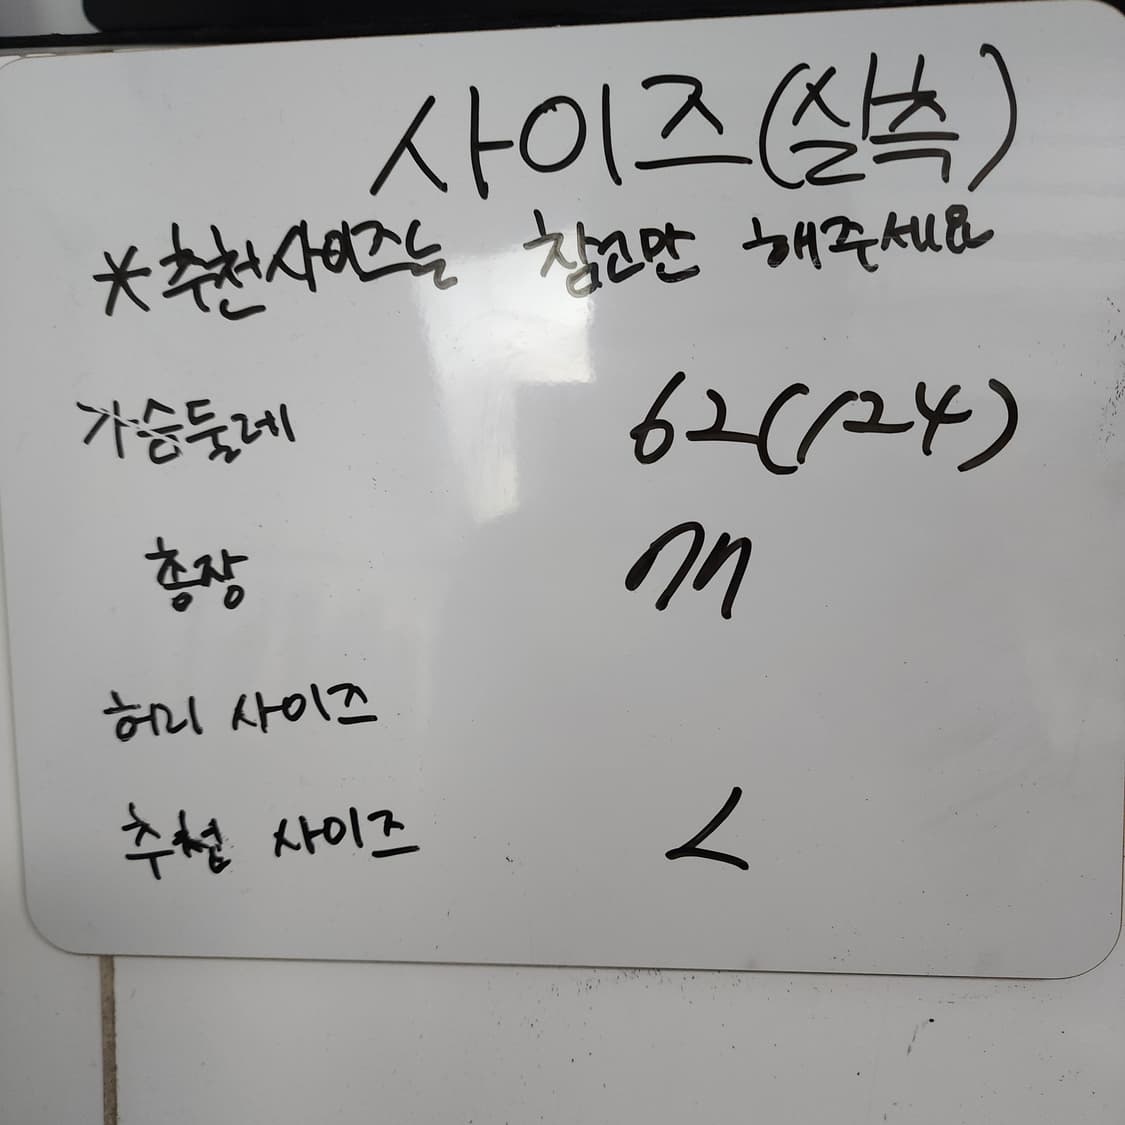 사이즈(실측)
*추천사이즈는 참고만 해주세요
가슴둘레 62(124)
총장 77
허리 사이즈
추천 사이즈 L